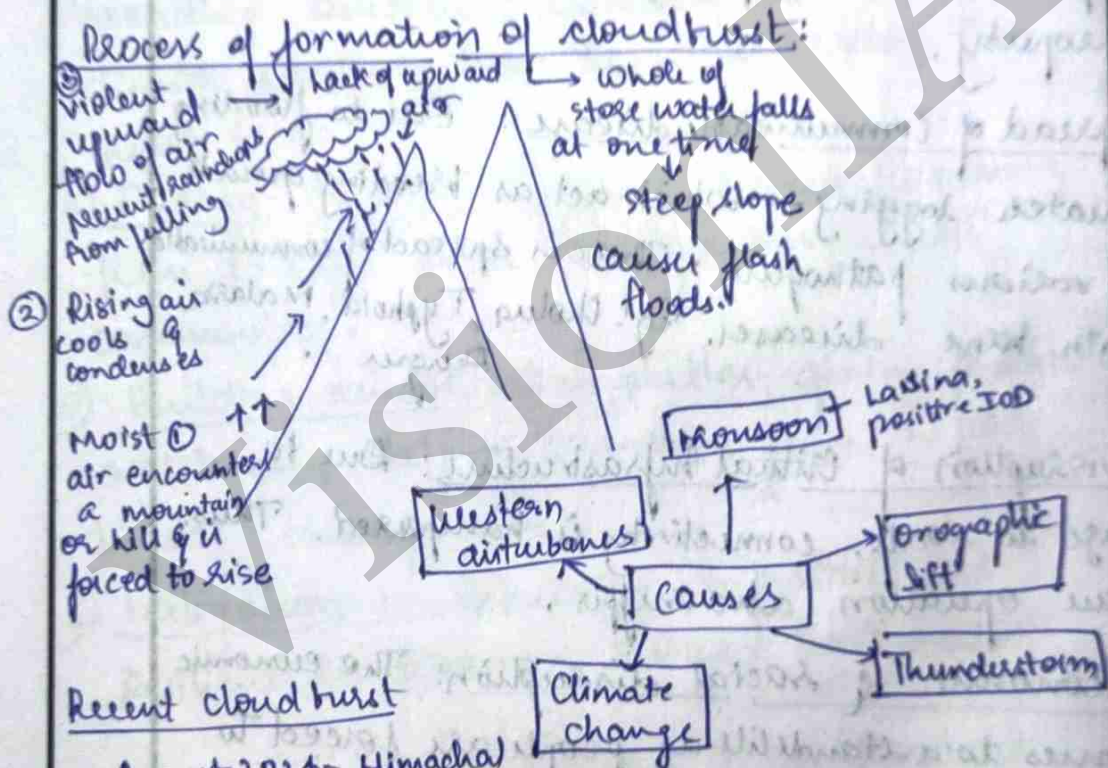 Process of formation of cloudburst:
③
Violent
upward
flow of air
prevent raindrops
from falling
Lack of upward
air
whole of
store water falls
at one time
steep slope
causes flash
floods.
② Rising air
cools &
condenses
Moist ①
air encounters
a mountain
or hill & is
forced to rise
Monsoon
La Nina,
positive IOD
Western
disturbances
Causes
Orographic
lift
Thunderstorm
Climate
change
Recent cloudburst
Himachal
VisionIA